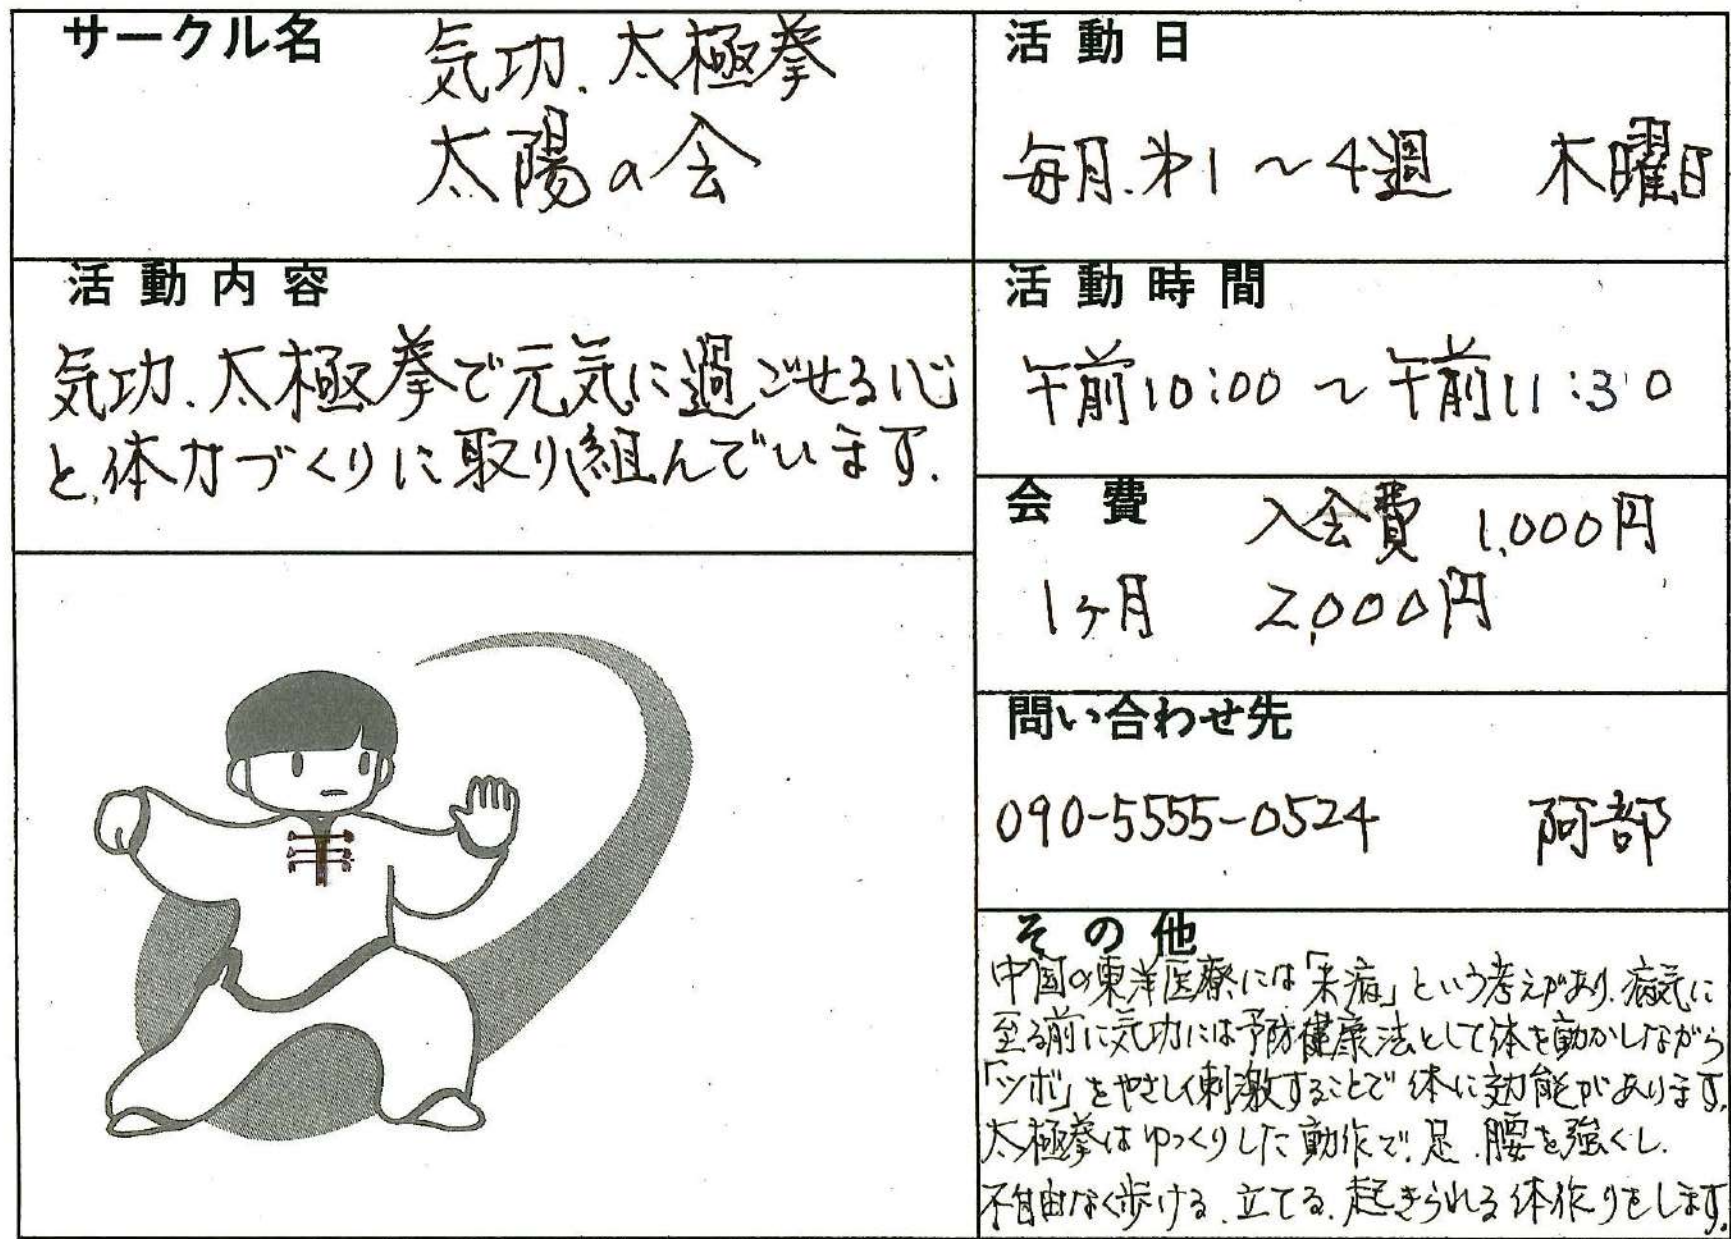 サークル名
気功、太極拳
太陽の会
活動日
毎月、第1〜4週 木曜日
活動内容
気功、太極拳で元気に過ごせる心
と、体力づくりに取り組んでいます。
活動時間
午前10:00〜午前11:30
会費 入会費 1,000円
1ヶ月 2,000円
問い合わせ先
090-5555-0524 阿部
その他
中国の東洋医療には「未病」という考えがあり、病気に
至る前に気功には予防健康法として体を動かしながら
「ツボ」をやさしく刺激することで体に効能があります。
太極拳はゆっくりした動作で、足、腰を強くし、
不自由なく歩ける、立てる、起きられる体作りをします。